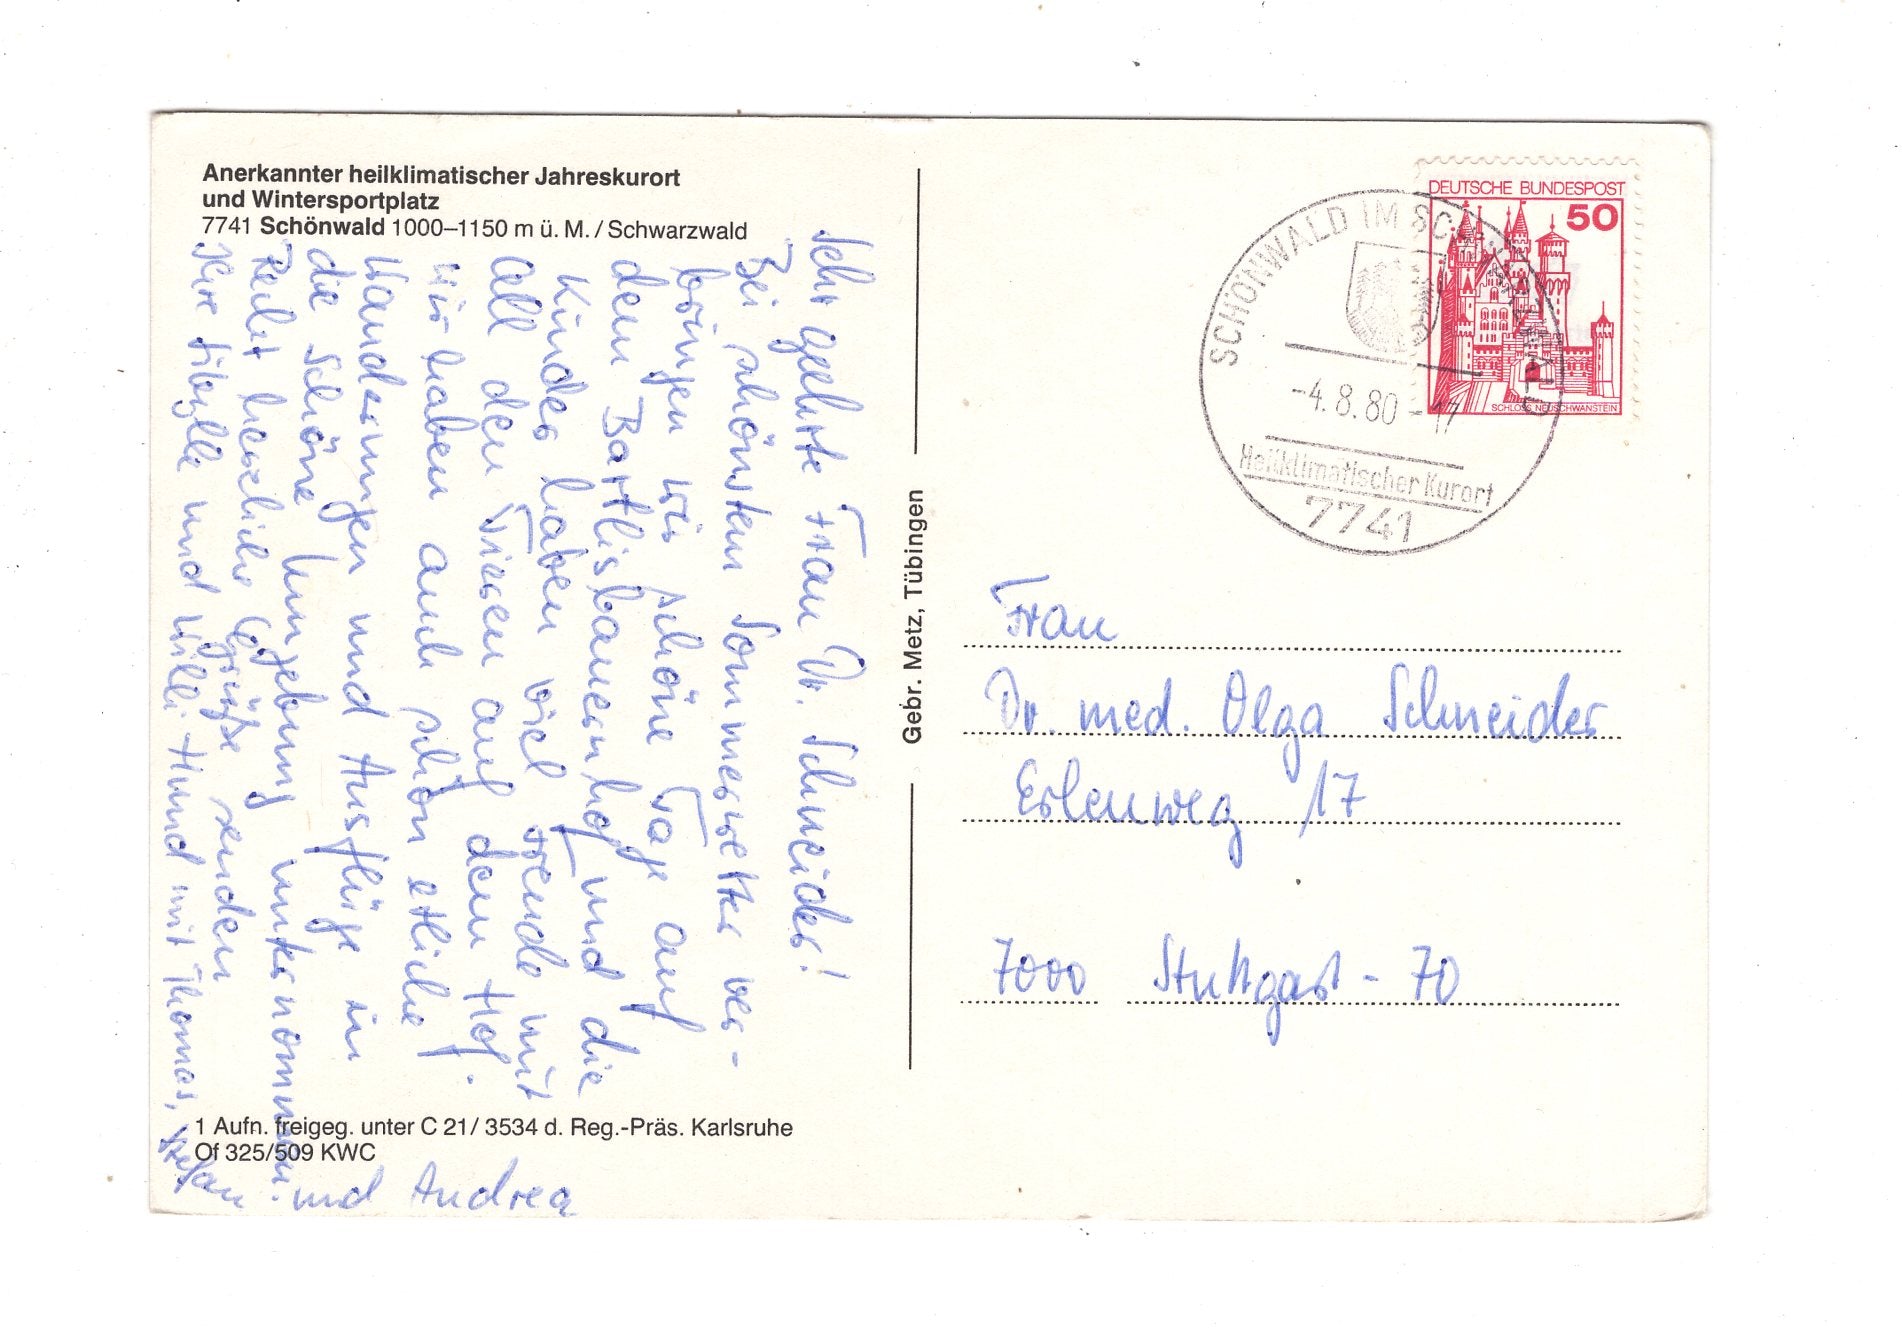 Anerkannter heilklimatischer Jahreskurort
und Wintersportplatz
7741 Schönwald 1000–1150 m ü. M. / Schwarzwald
Sehr geehrte Frau Dr. Schneider!
Bei schönstem Sommerwetter ver-
bringen wir schöne Tage auf
dem Bartlisbauernhof und die
Kinder haben viel Freude mit
all den Tieren auf dem Hof.
Wir haben auch schon etliche
Wanderungen und Ausflüge in
die schöne Umgebung unternommen.
Recht herzliche Grüße senden
Ihre und Willi Hund mit Thomas,
Stefan
und Andrea
1 Aufn. freigeg. unter C 21/ 3534 d. Reg.-Präs. Karlsruhe
Of 325/509 KWC
Gebr. Metz, Tübingen
DEUTSCHE BUNDESPOST
50
SCHLOSS NEUSCHWANSTEIN
SCHÖNWALD IM SCHWARZWALD
-4.8.80-17
Heilklimatischer Kurort
7741
Frau
Dr. med. Olga Schneider
Erlenweg 17
7000 Stuttgart - 70